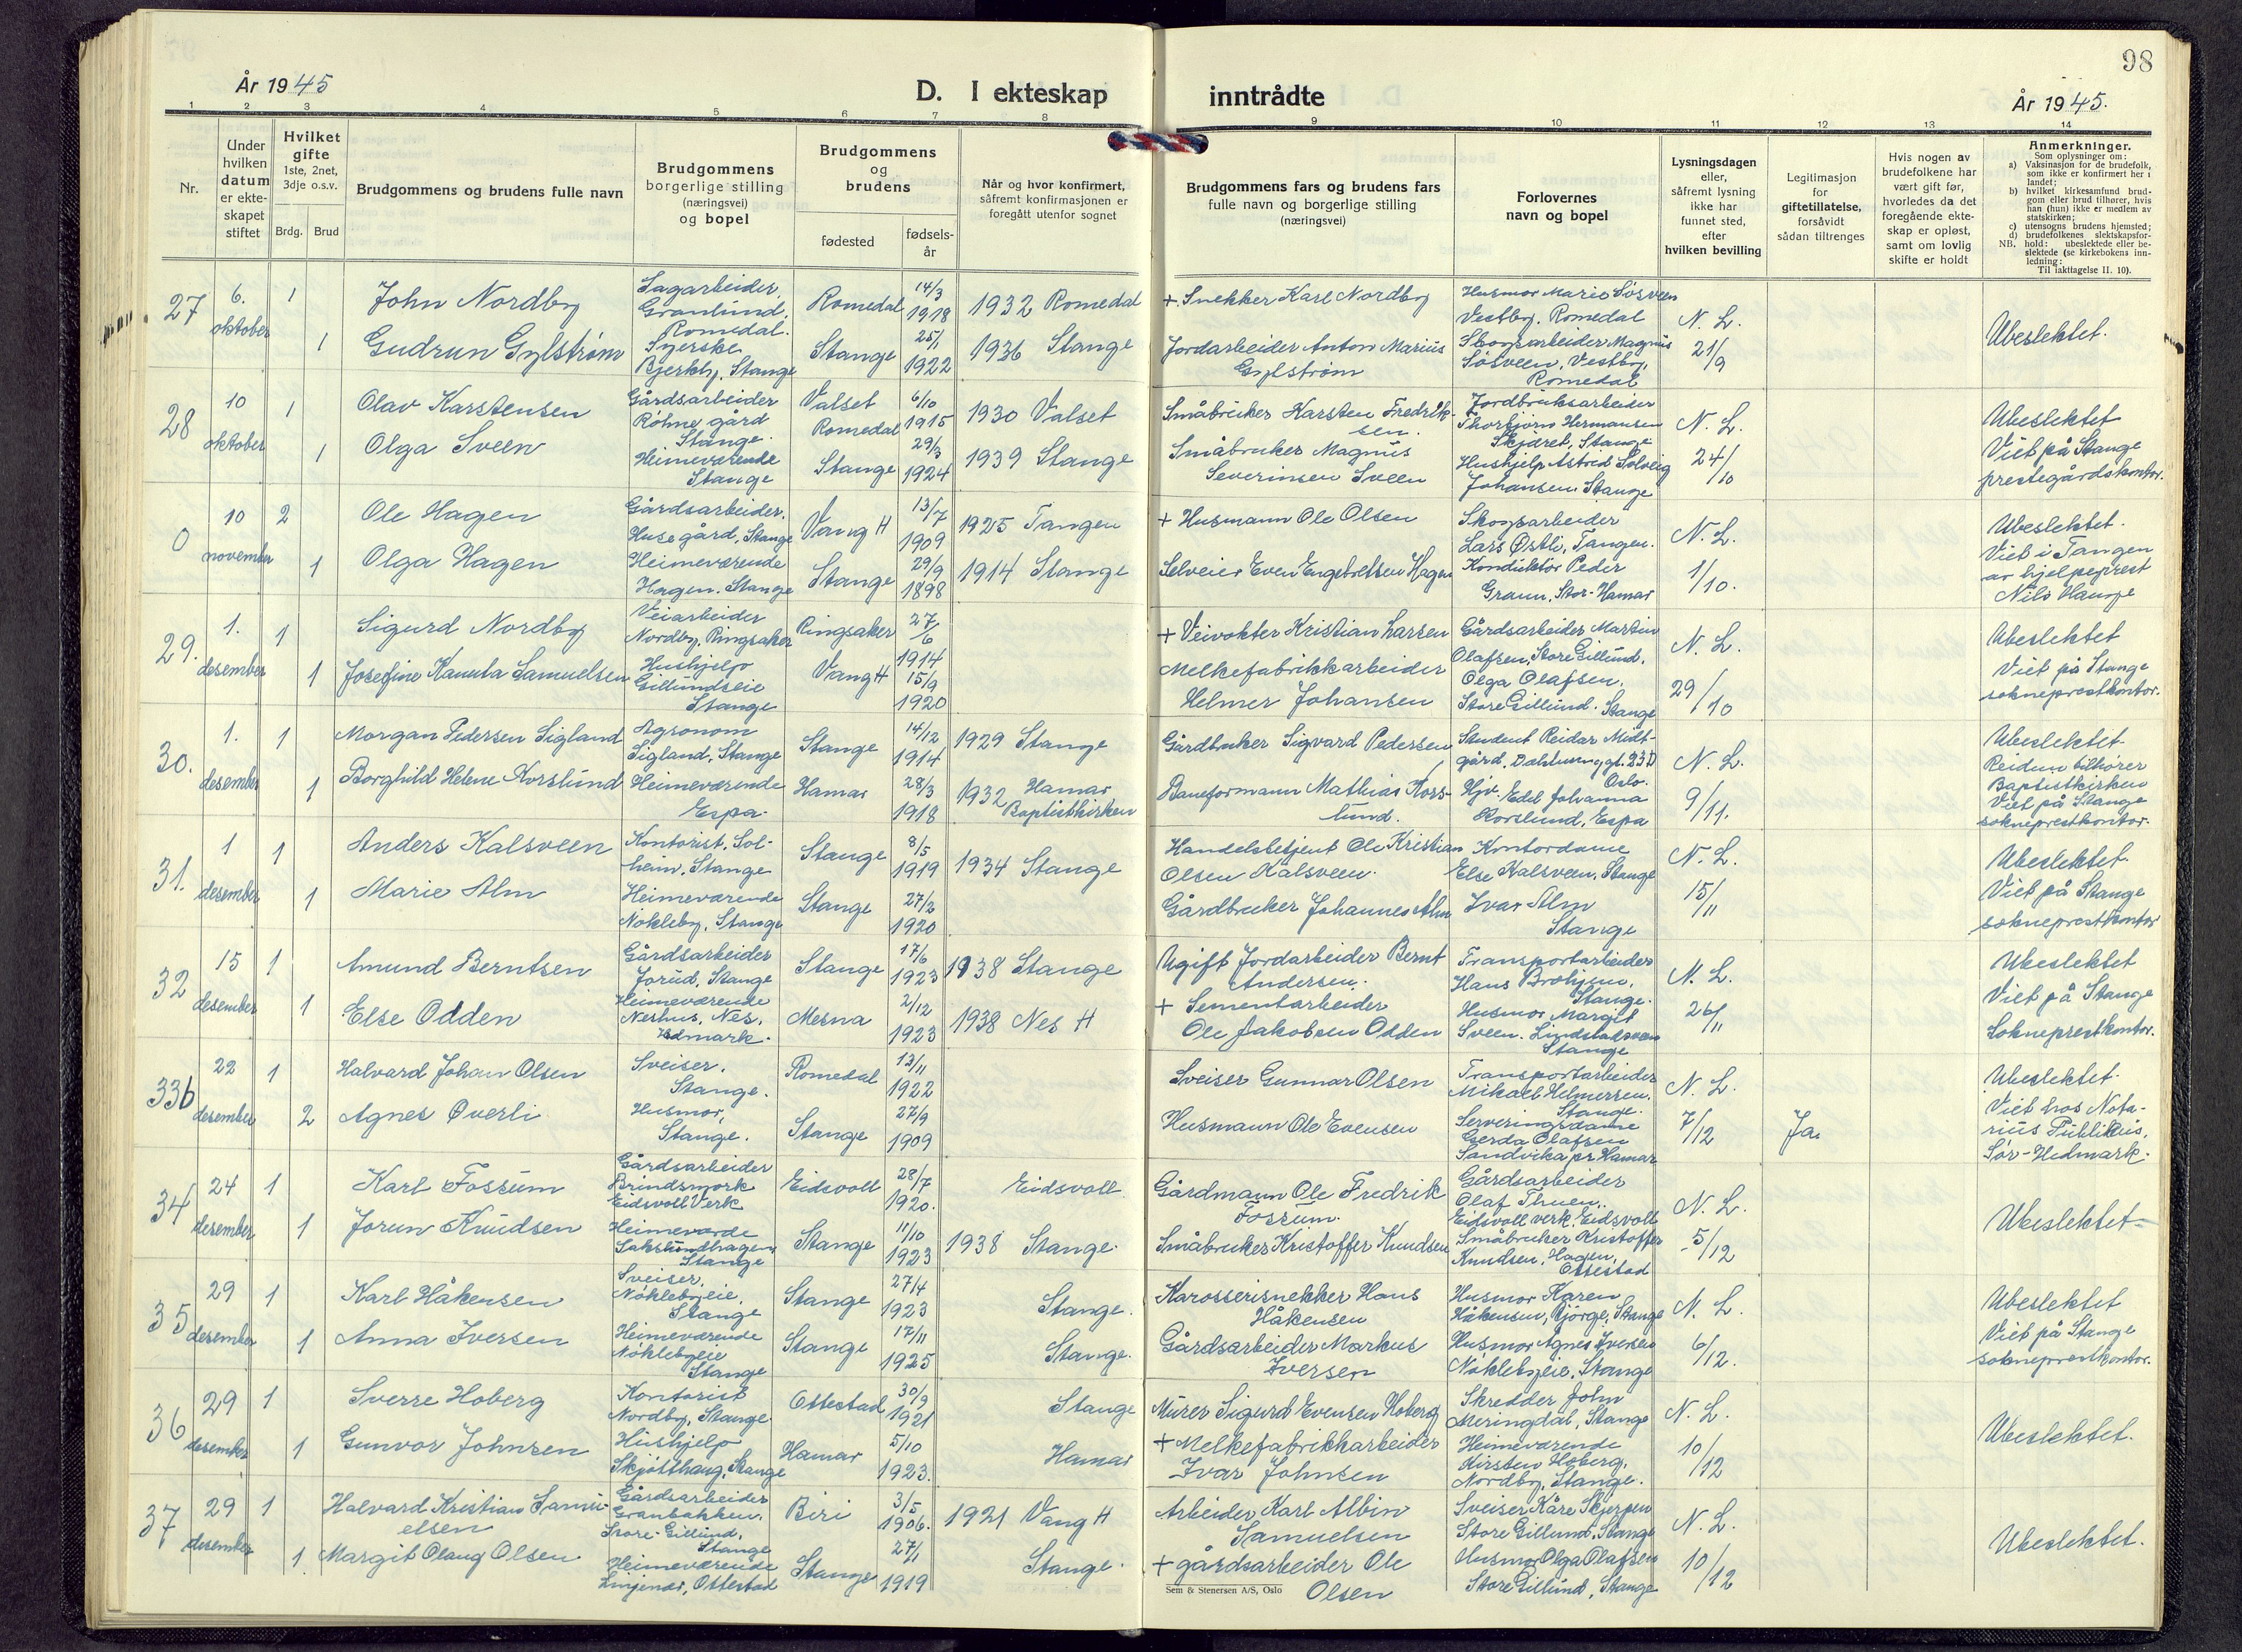 98
År 1945
D. I ekteskap inntrådte
År 1945.
1 2 3 4 5 6 7 8 9 10 11 12 13 14
Nr.
Under hvilken datum er ekteskapet stiftet
Hvilket gifte 1ste, 2net, 3dje o.s.v.
Brdg. Brud
Brudgommens og brudens fulle navn
Brudgommens borgerlige stilling (næringsvei) og bopel
Brudgommens og brudens
fødested
fødselsår
Når og hvor konfirmert, såfremt konfirmasjonen er foregått utenfor sognet
Brudgommens fars og brudens fars fulle navn og borgerlige stilling (næringsvei)
Forlovernes navn og bopel
Lysningsdagen eller, såfremt lysning ikke har funnet sted, efter hvilken bevilling
Legitimasjon for giftetillatelse, forsåvidt sådan tiltrenges
Hvis nogen av brudefolkene har vært gift før, hvorledes da det foregående ekteskap er opløst, samt om lovlig skifte er holdt
Anmerkninger.
Som oplysninger om:
a) Vaksinasjon for de brudefolk, som ikke er konfirmert her i landet;
b) hvilket kirkesamfund brudgom eller brud tilhører, hvis han (hun) ikke er medlem av statskirken;
c) utensogns brudens hjemsted;
d) brudefolkenes slektskapsforhold: ubeslektede eller beslektede (se kirkebokens innledning:
NB.
Til iakttagelse II. 10).
27 6. oktober 1 John Nordby Sagarbeider, Granlund, Romedal. Romedal 14/3 1918 1932 Romedal + Snekker Karl Nordby Husmor Marie Søsveen Vestby, Romedal N. L. 21/9 Ubeslektet.
1 Gudrun Gylstrøm Syerske Bjerkly, Stange Stange 25/1 1922 1936 Stange Jordarbeider Anton Marius Gylstrøm Skogsarbeider Magnus Søsveen, Vestby, Romedal
28 10 oktober 1 Olav Karstensen Gårdsarbeider Røhme gård Stange. Valset Romedal 6/10 1915 1930 Valset Småbruker Karsten Fredriksen. Jordbruksarbeider Thorbjørn Hermansen Skjæret, Stange N. L. 24/10 Ubeslektet Viet på Stange prestegårdskontor.
1 Olga Sveen Heimeværende Stange Stange 29/3 1924 1939 Stange Småbruker Magnus Severinsen Sveen Hushjelp Astrid Solveig Johansen. Stange
0 10 november 2 Ole Hagen Gårdsarbeider. Huse gård, Stange Vang H 13/7 1909 1925 Tangen + Husmann Ole Olsen Skogsarbeider Lars Østli, Tangen. N. L. 1/10. Ubeslektet. Viet i Tangen av hjelpeprest Nils Hauge
1 Olga Hagen Heimeværende Hagen. Stange Stange 29/9 1898 1914 Stange Selveier Even Engebretsen Hagen Konduktør Peder Graun, Stor-Hamar
29. 1. desember 1 Sigurd Nordby Veiarbeider Nordby, Ringsaker Ringsaker 27/6 1914 + Veivokter Kristian Larsen Gårdsarbeider Martin Olafsen, Store Gillund. N. L. 29/10 Ubeslektet Viet på Stange sokneprestkontor.
1 Josefine Kamilla Samuelsen Hushjelp Gillundseie Stange Vang H 15/9 1920 Melkefabrikkarbeider Helmer Johansen Olga Olafsen. Store Gillund. Stange
30. 1. desember 1 Morgan Pedersen Sigland Agronom Sigland, Stange Stange 14/12 1914 1929 Stange Gårdbruker Sigvard Pedersen Student Reidar Midtgård, Dahlumsgt. 23D Oslo. N. L. 9/11. Ubeslektet. Reidun tilhører Baptistkirken Viet på Stange sokneprestkontor.
1 Borghild Helene Korslund Heimeværende Espa. Hamar 28/3 1918 1932 Hamar Baptistkirken Baneformann Mathias Korslund. Hjv. Edel Johanna Korslund, Espa
31. 1 desember 1 Anders Kalsveen Kontorist, Solheim, Stange Stange 8/5 1919 1934 Stange Handelsbetjent Ole Kristian Olsen Kalsveen. Kontordame Else Kalsveen, Stange N. L. 15/11 Ubeslektet. Viet på Stange sokneprestkontor
1 Marie Alm Heimeværende Nøkleby, Stange Stange 27/2 1920 Gårdbruker Johannes Alm Ivar Alm Stange
32 15 desember 1 Amund Berntsen Gårdsarbeider Jorud, Stange Stange 17/6 1923 1938 Stange Ugift Jordarbeider Bernt Andersen. Transportarbeider Hans Brohjem, Stange. N. L. 26/11 Ubeslektet Viet på Stange Sokneprestkontor.
1 Else Odden Heimeværende Neshus, Nes, Hedmark. Mesna 2/12 1923 1938 Nes H + Sementarbeider Ole Jakobsen Odden Husmor Margit Sveen. Lindstadsveen Stange
33b 22 desember 1 Halvard Johan Olsen Sveiser. Stange. Romedal 13/11 1922 Sveiser Gunnar Olsen Transportarbeider Mikael Helmersen. Stange. N. L. 7/12 Ja. Ubeslektet. Viet hos Notarius Publikus, Sør-Hedmark.
2 Agnes Øverli Husmor, Stange. Stange 27/9 1909 Husmann Ole Evensen Serveringsdame Gerda Olafsen Sandvika pr. Hamar
34 24 desember 1 Karl Fossum Gårdsarbeider Brindsmork Eidsvoll Verk Eidsvoll 28/7 1920. Eidsvoll Gårdmann Ole Fredrik Fossum. Gårdsarbeider Olaf Thuen, Eidsvoll verk, Eidsvoll N. L. 5/12 Ubeslektet
1 Jorun Knudsen Heimeværde Sakslundhagen, Stange Stange 11/10 1923 1938 Stange. Småbruker Kristoffer Knudsen Småbruker Kristoffer Knudsen, Hagen, Ottestad
35 29 desember 1 Karl Håkensen Sveiser, Nøklebyeie, Stange Stange 27/4 1923 Stange. Karosserisnekker Hans Håkensen Husmor Karen Håkensen, Bjørge, Stange N. L. 6/12. Ubeslektet Viet på Stange sokneprestkontor.
1 Anna Iversen Heimeværende Nøklebyeie Stange Stange 17/11 1925 Stange. Gårdsarbeider Markus Iversen Husmor Agnes Iversen Nøklebyeie, Stange
36 29 desember 1 Sverre Hoberg Kontorist Nordby, Stange. Ottestad 30/9 1921 Stange Murer Sigurd Evensen Hoberg Skredder John Meringdal, Stange N. L. 10/12 Ubeslektet.
1 Gunvor Johnsen Hushjelp Skjøtthaug, Stange Hamar 5/10 1923. Hamar + Melkefabrikkarbeider Ivar Johnsen Heimeværende Kirsten Hoberg, Nordby, Stange.
37 29 desember 1 Halvard Kristian Samuelsen Gårdsarbeider Granbakken, Store-Gillund, Stange Biri 3/5 1906. 1921 Vang H Arbeider Karl Albin Samuelsen Sveiser Kåre Skjerpen Store Gillund, Stange N. L. 10/12 Ubeslektet.
1. Margit Olaug Olsen Heimeværende Linjendr, Ottestad Stange 27/1 1919 Stange. + gårdsarbeider Ole Olsen Husmor Olga Olafsen Store Gillund, Stange
Sem & Stenersen A/S, Oslo